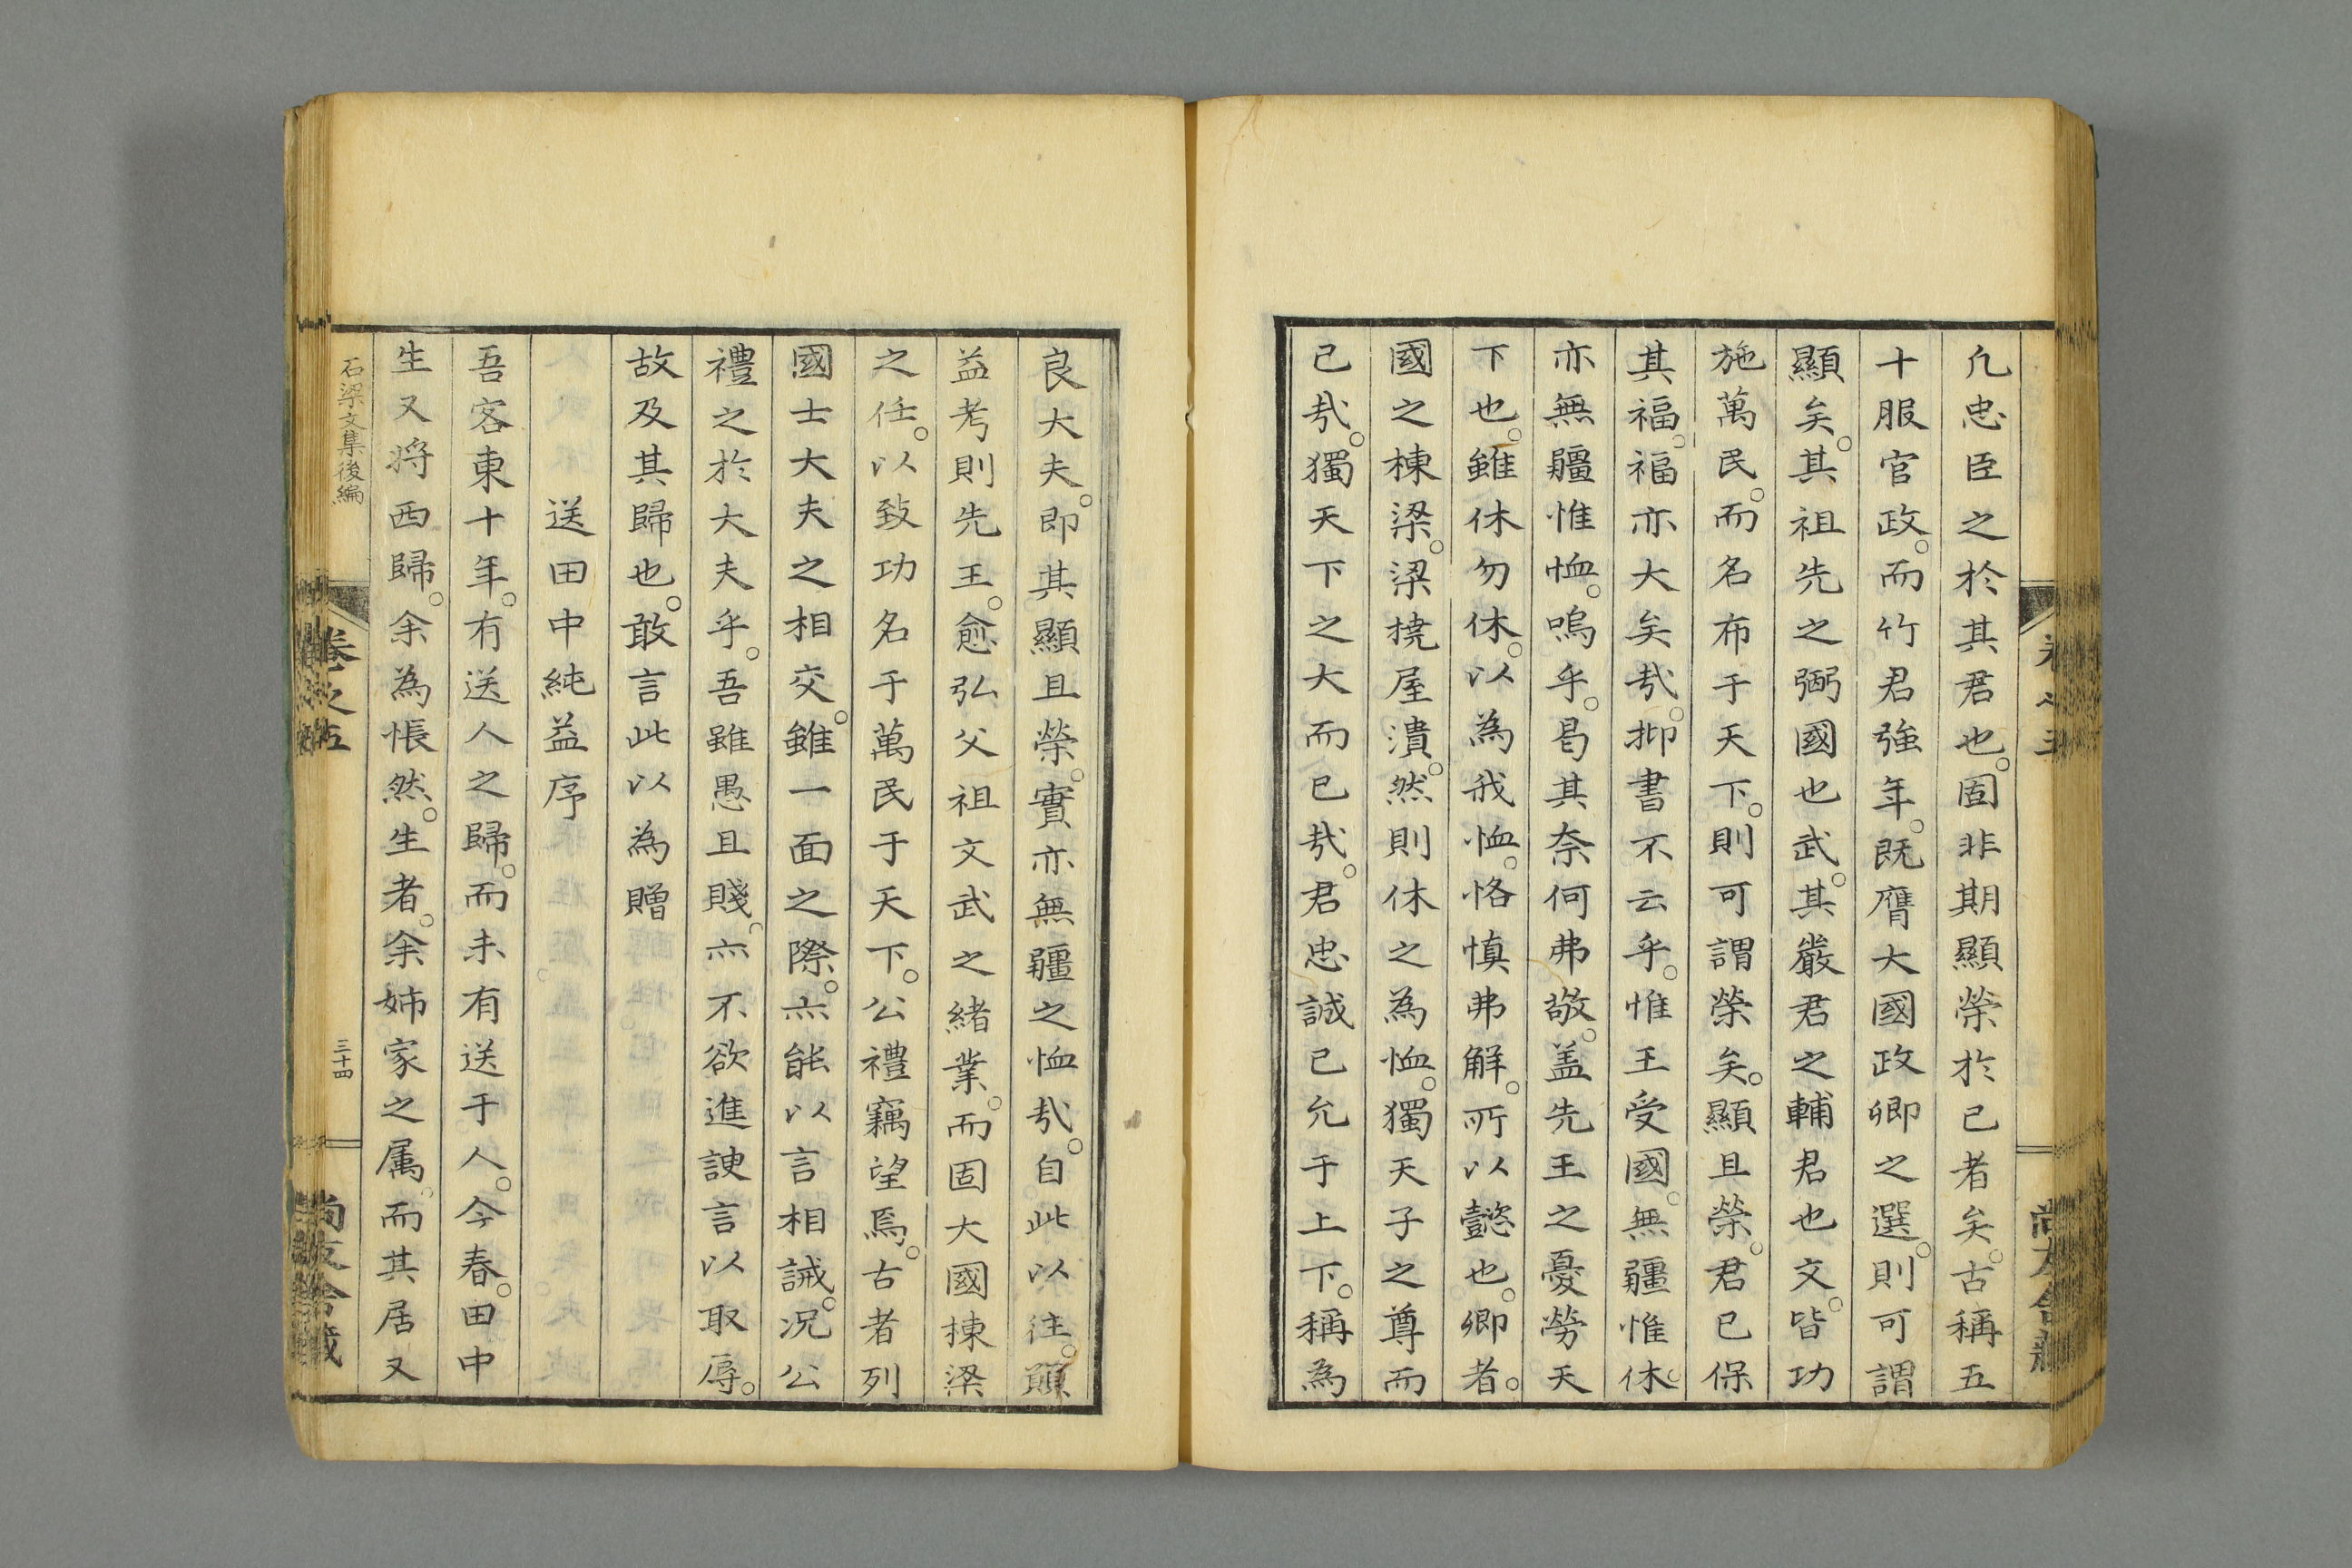 凢忠臣之於其君也。固非期顯榮於已者矣。古稱五
十服官政。而竹君強年。既膺大國政卿之選。則可謂
顯矣。其祖先之弼國也武。其嚴君之輔君也文。皆功
施萬民。而名布于天下。則可謂榮矣。顯且榮。君已保
其福。福亦大矣㢤。抑書不云乎。惟王受國。無疆惟休。
亦無疆惟恤。嗚乎。曷其奈何弗敬。盖先王之憂勞天
下也。雖休勿休。以為我恤。恪慎弗解。所以懿也。卿者。
國之棟梁。梁撓屋潰。然則休之為恤。獨天子之尊而
已㢤。獨天下之大而已㢤。君忠誠已允于上下。稱為
良大夫。即其顯且榮。實亦無疆之恤㢤。自此以往。願
益考則先王。愈弘父祖文武之緒業。而固大國棟梁
之任。以致功名于萬民于天下。公禮竊望焉。古者列
國士大夫之相交。雖一面之際。亦能以言相誡。况公
禮之於大夫乎。吾雖愚且賤。亦不欲進諛言以取辱。
故及其歸也。敢言此以為贈
送田中純益序
吾客東十年。有送人之歸。而未有送于人。今春。田中
生又将西歸。余為悵然。生者。余姉家之属。而其居又
石梁文集後編
卷之五
三十四
尚友舎藏